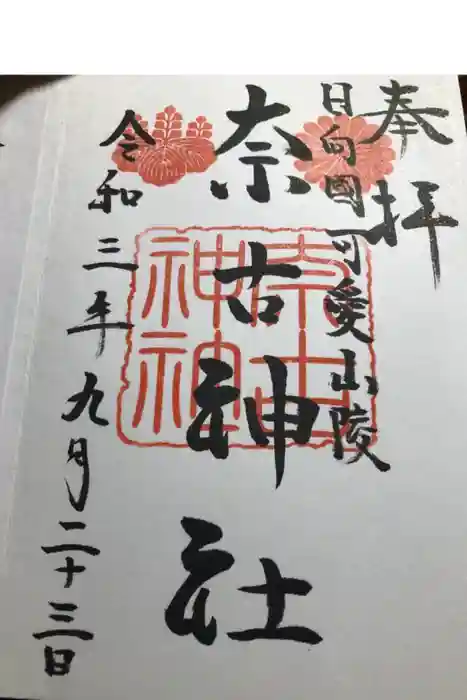 奉拝
日向國可愛山陵
奈古神社
令和三年九月二十三日
奈古
神社